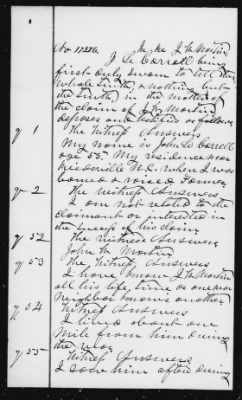 No 17256. In re J. W. Martin
J Le Carroll being
first duly sworn to tell the
whole truth, & nothing but
the truth, in the matter of
the claim of J. W. Martin
deposes and testified as follows
q 1 The Witness Answers
My name is John Le Carroll
age 55. My residence near
N.C. where I was
borned & raised. Farmer
q- 2 The witness Answers
I am not related to the
claimant or interested in
the success of his claim
q 52 The Witness Answers,
John W. Martin
q 53 The Witness Answers
I have know J W Martin
all his life time as one near
Neighbor knows another
q 54 Witness Answers
I lived about one
Mile from him during
the war
q 55 Witness Answers,
I saw him often during